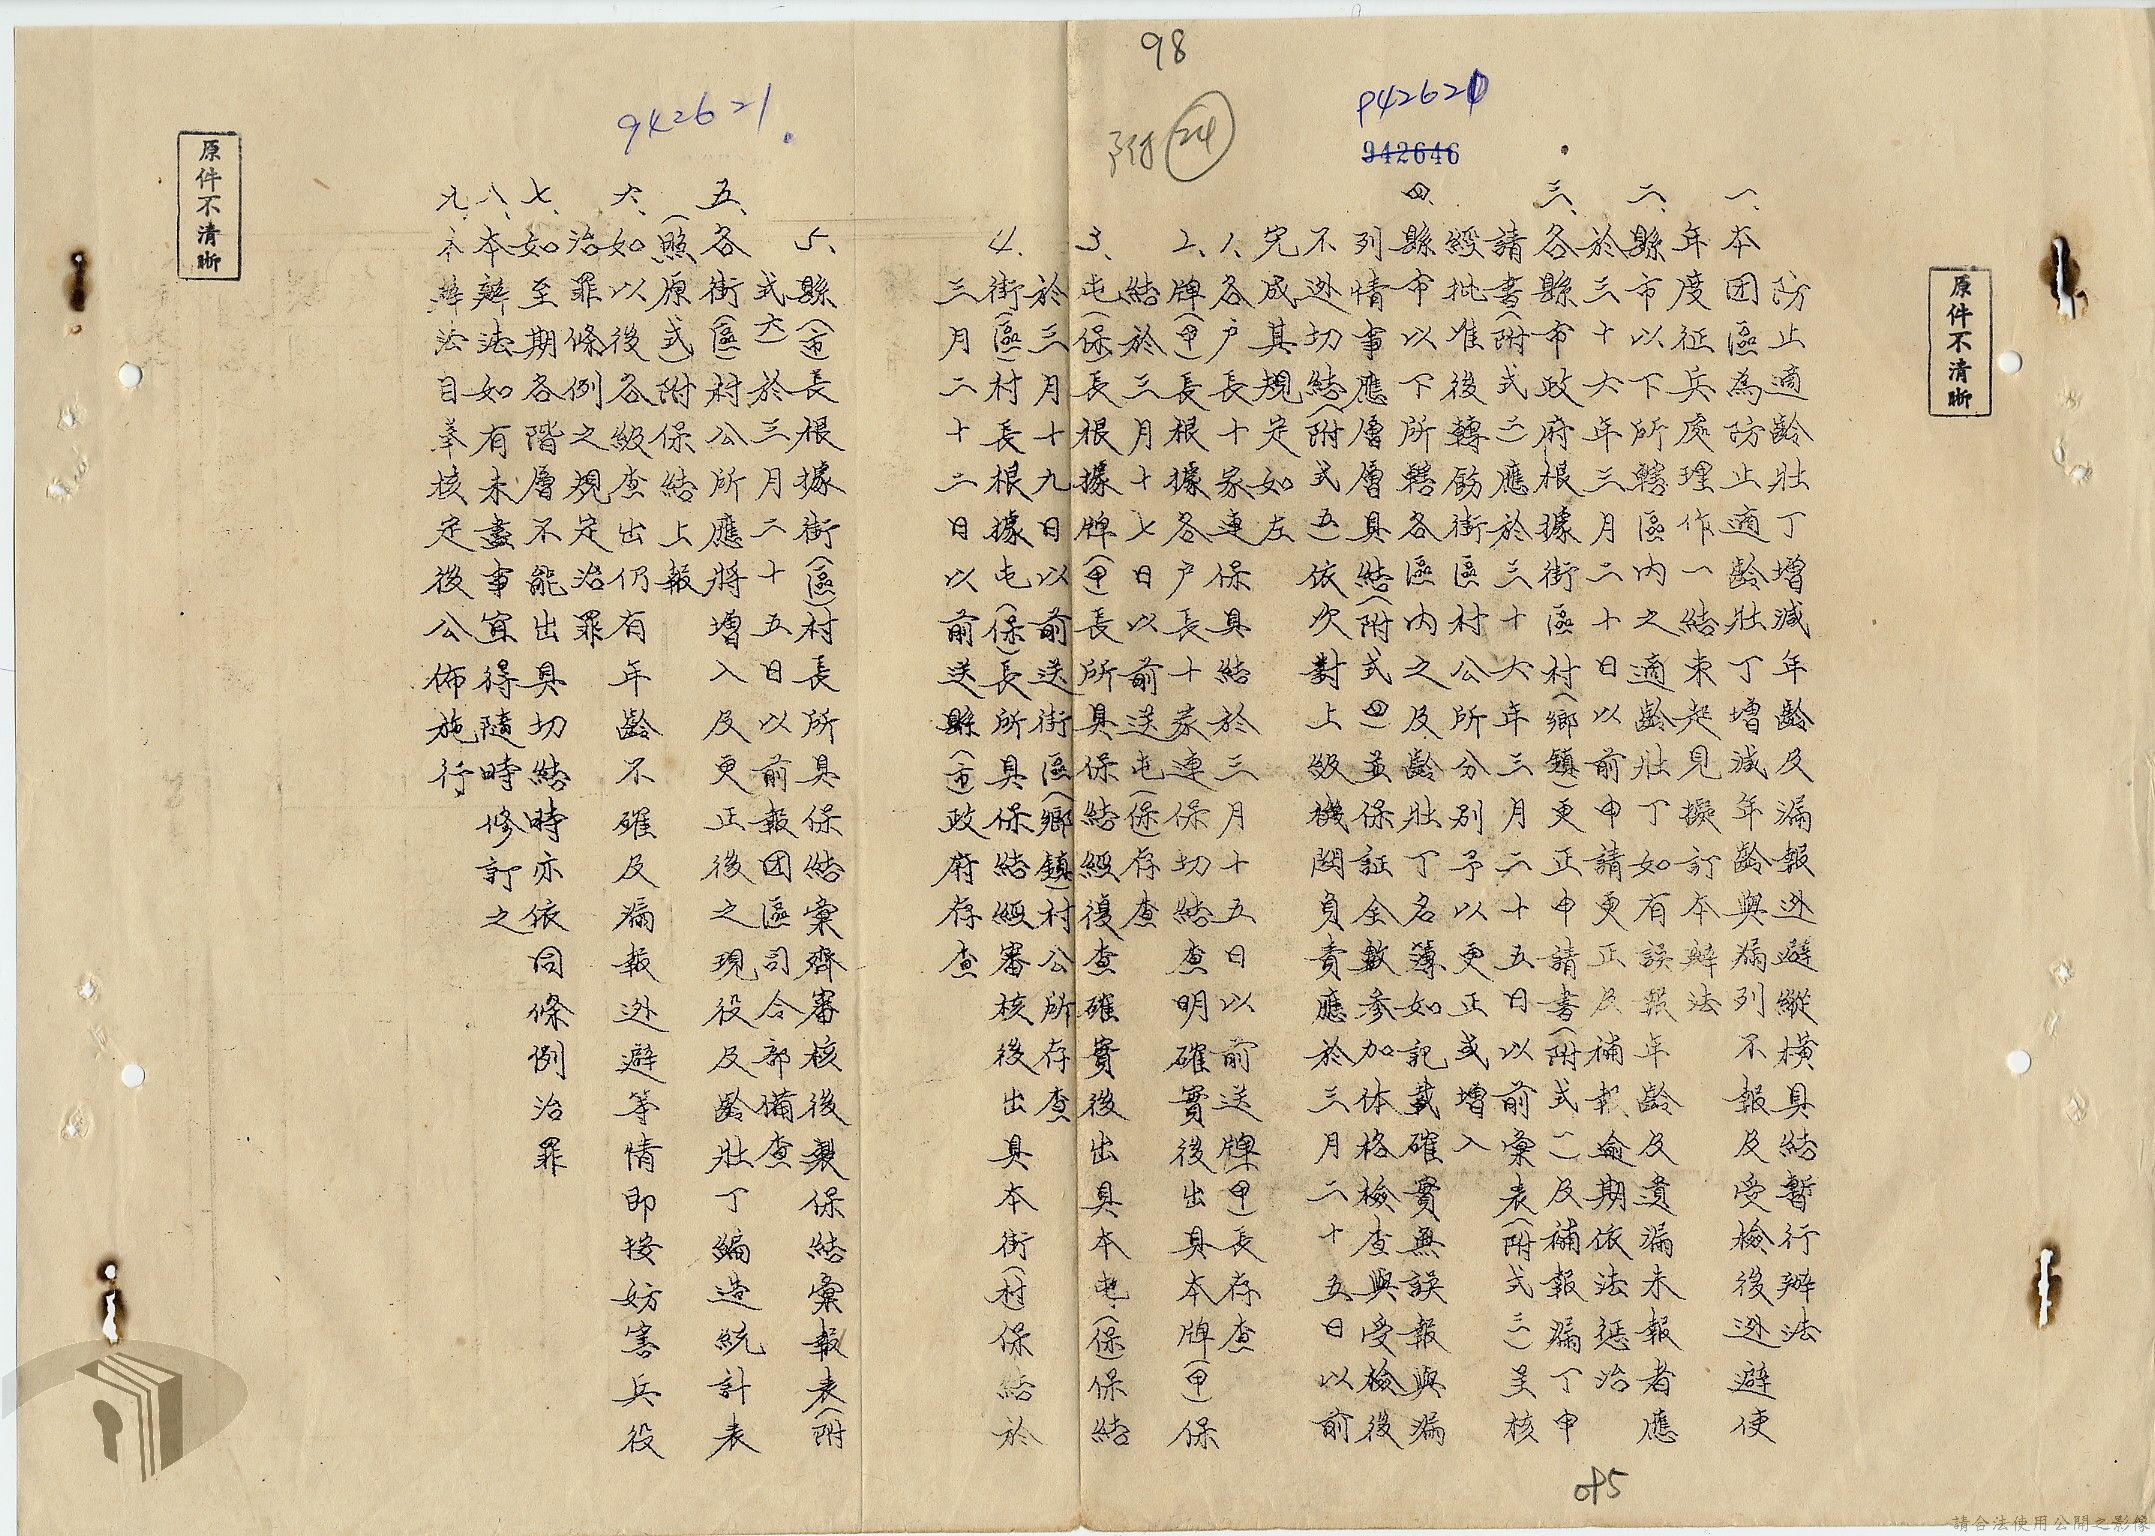 98
附 24
P42621
942646
942621.
原件不清晰
防止適齡壯丁增減年齡及漏報逃避縱橫具結暫行辦法
一、本団區為防止適齡壯丁增減年齡與漏列不報及受檢後逃避使
年度征兵處理作一結束起見擬訂本辦法
二、縣市以下所轄區內之適齡壯丁如有誤報年齡及遺漏未報者應
於三十六年三月二十日以前申請更正及補報逾期依法惩治
三、各縣市政府根據街區村(鄉鎮)更正申請書(附式一)及補報漏丁申
請書(附式二)應於三十六年三月二十五日以前彙表(附式三)呈核
經批准後轉飭街區村公所分別予以更正或增入
四、縣市以下所轄各區內之及齡壯丁名簿如記載確實無誤報與漏
列情事應層層具結(附式四)並保証全數參加体格檢查與受檢後
不逃切結(附式五)依次對上級機関負責應於三月二十五日以前
完成其規定如左
1.各戶長十家連保具結於三月十五日以前送牌(甲)長存查
2.牌(甲)長根據各戶長十家連保切結查明確實後出具本牌(甲)保
結於三月十七日以前送屯(保)存查
3.屯(保)長根據牌(甲)長所具保結經復查確實後出具本屯(保)保結
於三月十九日以前送街區(鄉鎮)村公所存查
4.街(區)村長根據屯(保)長所具保結經審核後出具本街(村)保結於
三月二十二日以前送縣(市)政府存查
5.縣(市)長根據街(區)村長所具保結彙齊審核後製保結彙報表(附
式六)於三月二十五日以前報団區司令部備查
五、各街(區)村公所應將增入及更正後之現役及齡壯丁編造統計表
(照原式)附保結上報
六、如以後各級查出仍有年齡不確及漏報逃避等情即按妨害兵役
治罪條例之規定治罪
七、如至期各階層不能出具切結時亦依同條例治罪
八、本辦法如有未盡事宜得隨時修訂之
九、本辦法自奉核定後公佈施行
原件不清晰
085
請合法使用公開之影像